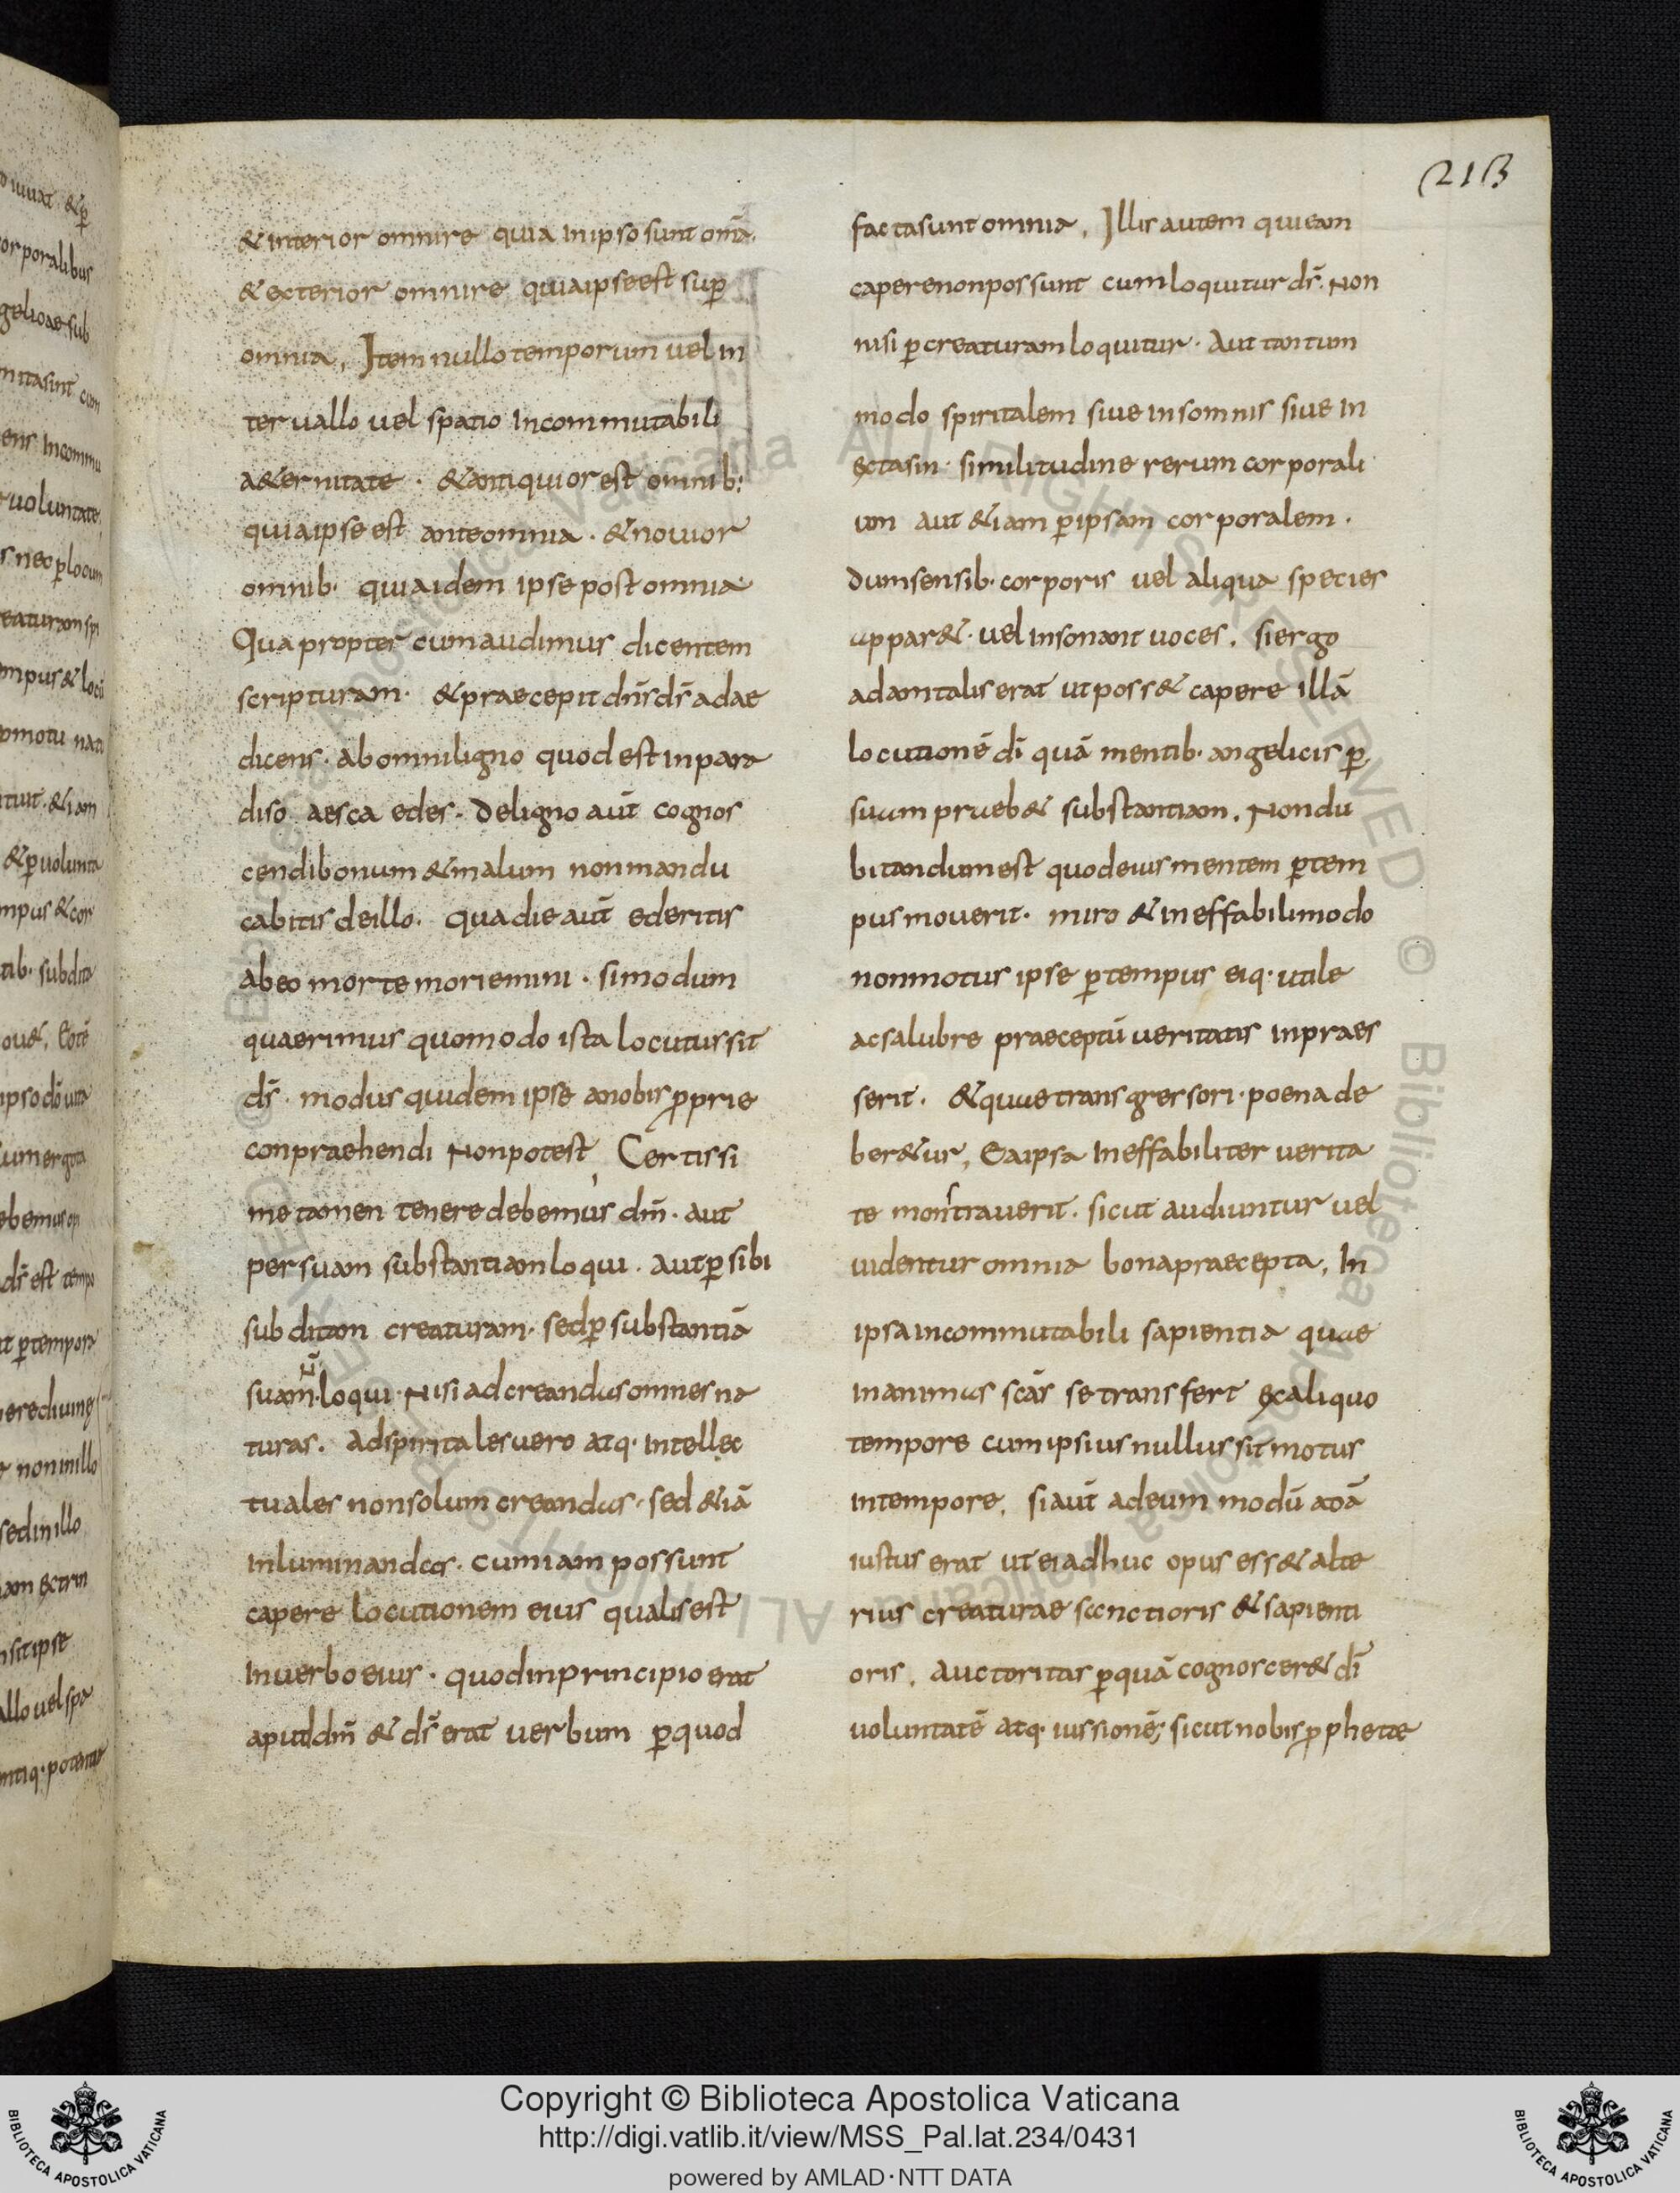 213
& interior omni re quia in ipso sunt om̄a.
& exterior omni re quia ipse est sup̱
omnia, Item nullo temporum uel in
teruallo uel spatio Incommutabili
a&ernitate · & antiquior est omnib:
quia ipse est ante omnia · & nouior
omnib· quia idem ipse post omnia
Qua propter cum audimus dicentem
scripturam· & praecepit dn̄s ds̄ adae
dicens· ab omni ligno quod est in para
diso aesca edes· De ligno aūt cognos
cendi bonum & malum non mandu
cabitis de illo· qua die aūt ederitis
ab eo morte moriemini · si modum
quaerimus quomodo ista locutus sit
ds̄ · modus quidem ipse a nobis ꝓprie
conpraehendi Non potest, Certissi
me tamen tenere debemus dm̄ · aut
per suam substantiam loqui · aut ꝑ sibi
subditam creaturam· sed ꝑ substantiā
n̄
suam·loqui· Nisi ad creandas omnes na
turas· ad spiritales uero atq· intellec
tuales non solum creandas· sed &iā
inluminandas· cum iam possunt
capere locutionem eius qualis est
in uerbo eius · quod in principio erat
aput dm̄ & ds̄ erat uerbum ꝑ quod
facta sunt omnia, Illis autem qui eam
capere non possunt cum loquitur ds̄· Non
nisi ꝑ creaturam loquitur· Aut tantum
modo spiritalem siue in somnis siue in
extasin· similitudine rerum corporali
um aut &iam ꝑ ipsam corporalem ·
Dum sensib· corporis uel aliqua species
appar&· uel insonant uoces, si ergo
adam talis erat ut poss& capere illā
locutionē dī quā mentib· angelicis ꝑ
suam praeb& substantiam, Non du
bitandum est quod eius mentem ꝑ tem
pus mouerit· miro & ineffabili modo
non motus ipse ꝑ tempus eiq· utile
ac salubre praeceptū ueritatis inpraes
serit· & quae transgressori· poena de
ber&ur, Ea ipsa ineffabiliter uerita
s
te montrauerit· sicut audiuntur uel
uidentur omnia bona praecepta, In
ipsa incommutabili sapientia quae
in animas scās se transfert ex aliquo
tempore cum ipsius nullus sit motus
in tempore, si aūt ad eum modū adā
iustus erat ut ei adhuc opus ess& alte
rius creaturae sanctioris & sapienti
oris, auctoritas ꝑ quā cognoscer& dī
uoluntatē atq· iussionē; sicut nobis ꝓphetae
Copyright © Biblioteca Apostolica Vaticana
http://digi.vatlib.it/view/MSS_Pal.lat.234/0431
powered by AMLAD·NTT DATA
BIBLIOTECA APOSTOLICA VATICANA
BIBLIOTECA APOSTOLICA VATICANA